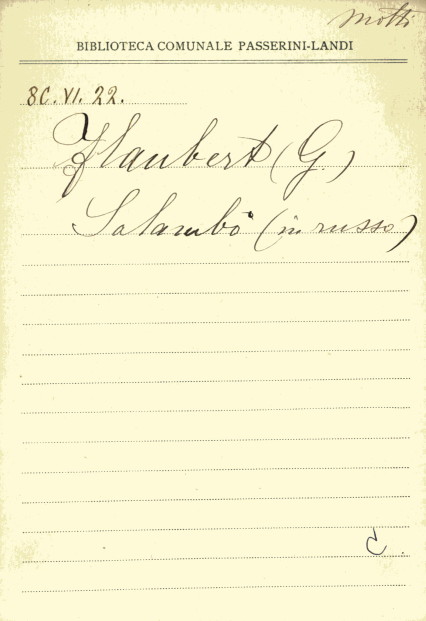 Motti
BIBLIOTECA COMUNALE PASSERINI-LANDI
8C. VI. 22.
Flaubert (G.)
Salambô (in russo)
C.